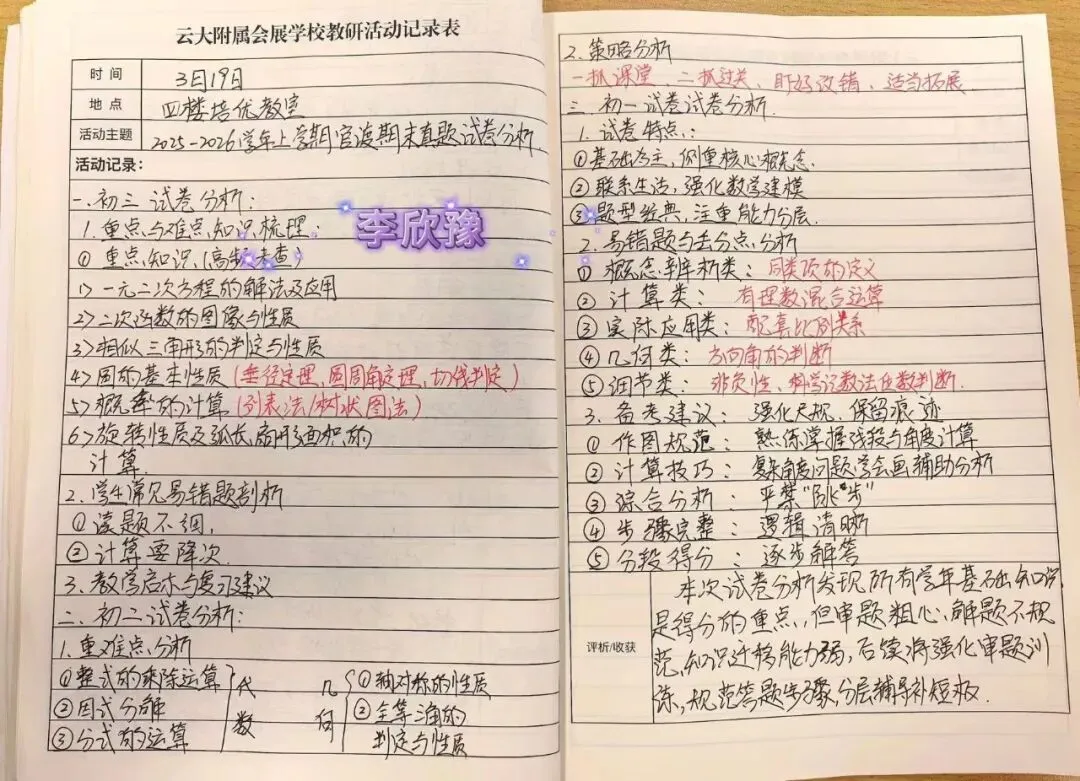 云大附属会展学校教研活动记录表
时间 3月19日
地点 四楼培优教室
活动主题 2025-2026学年上学期官渡期末真题试卷分析
活动记录:
一.初三 试卷分析:
1.重点与难点知识梳理:
李欣豫
① 重点知识(高频考查)
1> 一元二次方程的解法及应用
2> 二次函数的图像与性质
3> 相似三角形的判定与性质
4> 圆的基本性质(垂径定理,圆周角定理,切线判定)
5> 概率的计算(列表法/树状图法)
6> 旋转性质及弧长,扇形面积的
计算.
2.学生常见易错题剖析
① 读题不细,
② 计算要降次.
3.教学启示与复习建议
二.初二试卷分析:
1.重难点分析
①整式的乘除运算
②因式分解
③分式的运算
代数
几何
①轴对称的性质
②全等三角的
判定与性质
2.策略分析
一抓课堂、二抓过关、盯好改错、适当拓展
三.初一试卷试卷分析.
1.试卷特点:
①基础为主,侧重核心概念.
②联系生活,强化数学建模
③题型经典,注重能力分层.
2.易错题与丢分点分析
① 概念辨析类:同类项的定义
② 计算类:有理数混合运算
③ 实际应用类:配套比例关系
④ 几何类:方向角的判断
⑤ 细节类:非负性、科学记数法位数判断.
3.备考建议:强化尺规,保留痕迹
① 作图规范:熟练掌握线段与角度计算
② 计算技巧:复杂角度问题学会画辅助分析
③ 综合分析:严禁“跳步”
④ 步骤完整:逻辑清晰
⑤ 分段得分:逐步解答
评析/收获
本次试卷分析发现所有学年基础知识
是得分的重点,但审题粗心,解题不规
范,知识迁移能力弱,后续将强化审题训
练,规范答题步骤,分层辅导补短板.